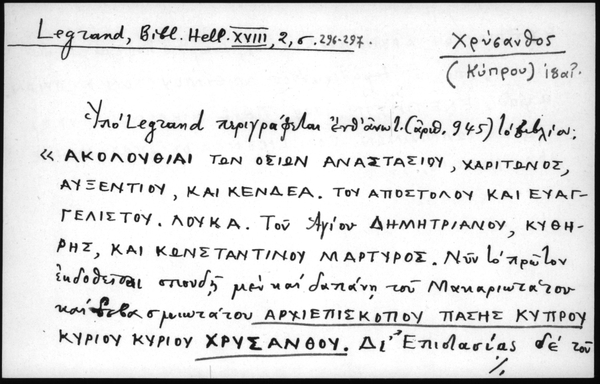 Legrand, Bibl. Hell. XVIII, 2, σ. 296-297.
Χρύσανθος
(Κύπρου)
Ὑπὸ Legrand περιγράφεται ἐνθ' ἀνωτ. (ἀριθ. 945) τὸ βιβλίον:
« ΑΚΟΛΟΥΘΙΑΙ ΤΩΝ ΟΣΙΩΝ ΑΝΑΣΤΑΣΙΟΥ, ΧΑΡΙΤΩΝΟΣ,
ΑΥΞΕΝΤΙΟΥ, ΚΑΙ ΚΕΝΔΕΑ. ΤΟΥ ΑΠΟΣΤΟΛΟΥ ΚΑΙ ΕΥΑΓ-
ΓΕΛΙΣΤΟΥ. ΛΟΥΚΑ. Τοῦ Ἁγίου ΔΗΜΗΤΡΙΑΝΟΥ, ΚΥΘΗ-
ΡΗΣ, ΚΑΙ ΚΩΝΣΤΑΝΤΙΝΟΥ ΜΑΡΤΥΡΟΣ. Νῦν τὸ πρῶτον
ἐκδοθεῖσαι σπουδῇ μὲν καὶ δαπάνῃ τοῦ Μακαριωτάτου
καὶ σεβασμιωτάτου ΑΡΧΙΕΠΙΣΚΟΠΟΥ ΠΑΣΗΣ ΚΥΠΡΟΥ
ΚΥΡΙΟΥ ΚΥΡΙΟΥ ΧΡΥΣΑΝΘΟΥ. Δι' Ἐπιστασίας δὲ τοῦ
./.